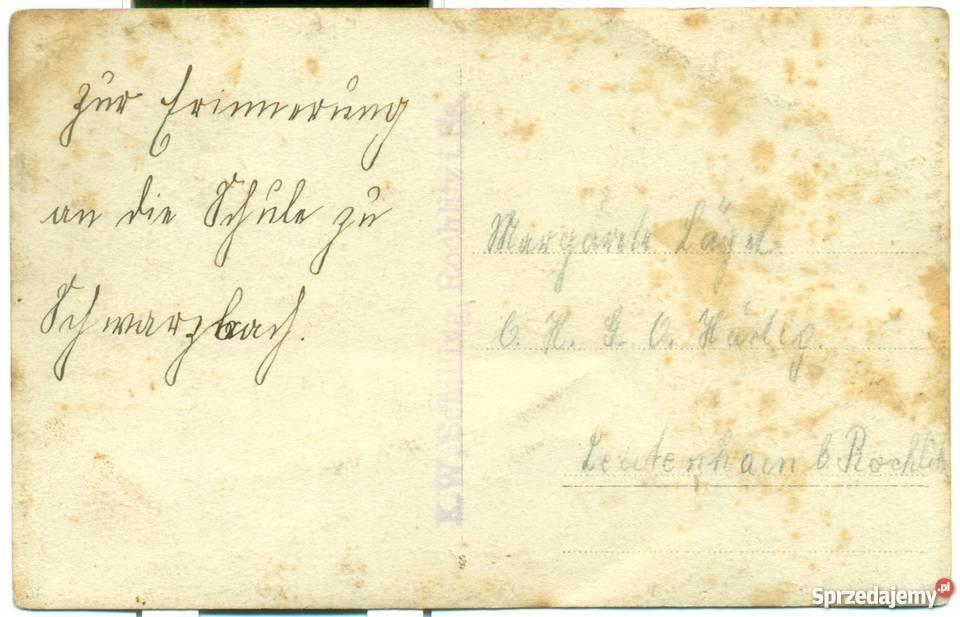 zur Erinnerung
an die Schule zu
Schwarzbach.
K. W. Schulzig, Rochlitz i. Sa.
Margarete Lägel
b. H. G. O. Härtig.
Leutenhain b Rochlitz
Sprzedajemy.pl